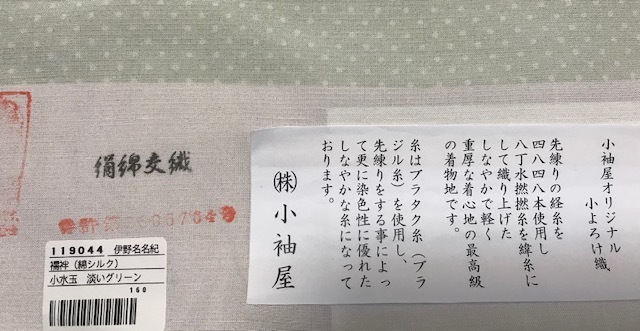 小袖屋オリジナル
小よろけ織
先練りの経糸を
四八四八本使用し
八丁水撚撚糸を緯糸に
して織り上げた
しなやかで軽く
重厚な着心地の最高級
の着物地です。
糸はブラタク糸（ブラ
ジル糸）を使用し、
先練りをする事によっ
て更に染色性に優れた
しなやかな糸になって
おります。
㈱小袖屋
絹綿交織
119044 伊野名名紀
襦袢（綿シルク）
小水玉 淡いグリーン
160